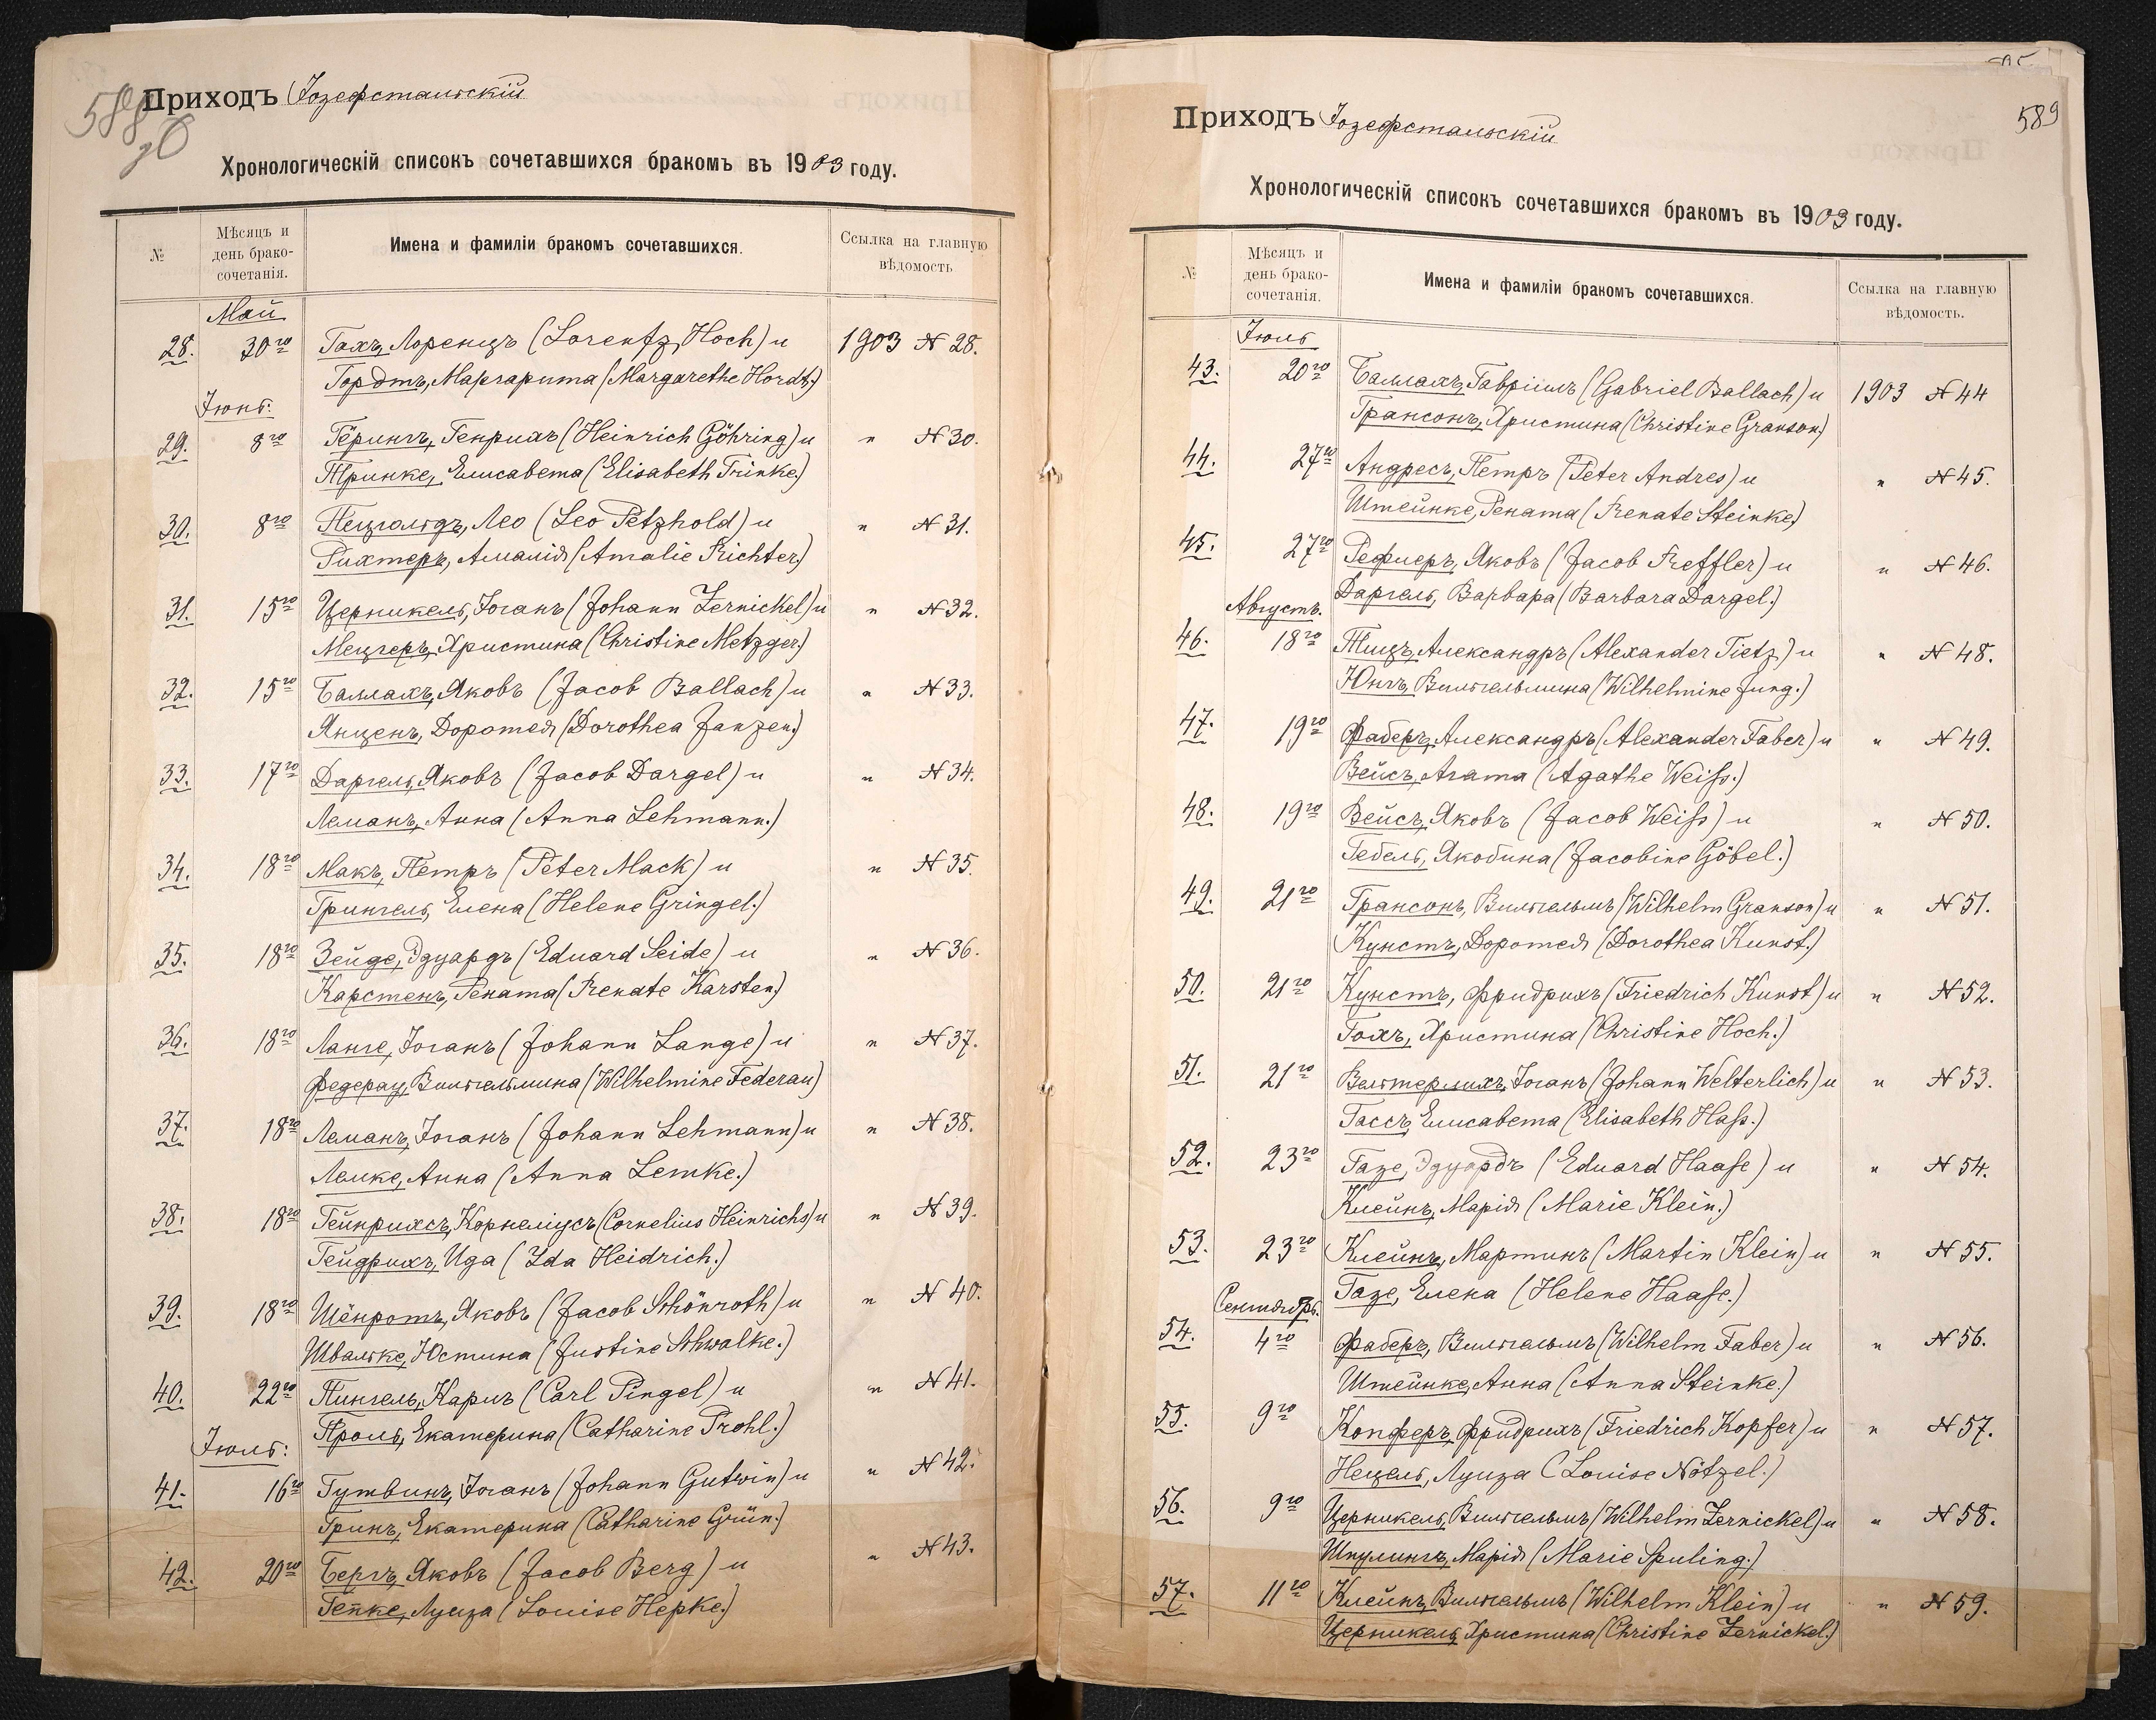 588
об
Приходъ Іозефстальскій
Хронологическій списокъ сочетавшихся бракомъ въ 1903 году.
№
Мѣсяцъ и день брако-сочетанія.
Имена и фамиліи бракомъ сочетавшихся.
Ссылка на главную вѣдомость
Май
28. 30го Гохъ, Лоренцъ (Lorentz Hoch) и 1903 № 28.
Гордтъ, Маргарита (Margarethe Hordt.)
Іюнь:
29. 8го Гёрингъ, Генрихъ (Heinrich Göhring) и " № 30.
Тринке, Елисавета (Elisabeth Trinke.)
30. 8го Пецгольдъ, Лео (Leo Petzhold) и " № 31.
Рихтеръ, Амалія (Amalie Richter.)
31. 15го Церникель, Іоганъ (Johann Zernickel) и " № 32.
Мецгеръ, Христина (Christine Metzger.)
32. 15го Баллахъ, Яковъ (Jacob Ballach) и " № 33.
Янценъ, Доротея (Dorothea Janzen.)
33. 17го Даргель, Яковъ (Jacob Dargel) и " № 34.
Леманъ, Анна (Anna Lehmann.)
34. 18го Макъ, Петръ (Peter Mack) и " № 35.
Грингель, Елена (Helene Gringel.)
35. 18го Зейде, Эдуардъ (Eduard Seide) и " № 36.
Карстенъ, Рената (Renate Karsten.)
36. 18го Ланге, Іоганъ (Johann Lange) и " № 37.
Федерау, Вильгельмина (Wilhelmine Federau)
37. 18го Леманъ, Іоганъ (Johann Lehmann) и " № 38.
Лемке, Анна (Anna Lemke.)
38. 18го Гейнрихсъ, Корнеліусъ (Cornelius Heinrichs) и " № 39.
Гейдрихъ, Ида (Ida Heidrich.)
39. 18го Шёнротъ, Яковъ (Jacob Schönroth) и " № 40.
Швальке, Юстина (Justine Schwalke.)
40. 22го Пингель, Карлъ (Carl Pingel) и " № 41.
Проль, Екатерина (Catharine Prohl.)
Іюль:
41. 16го Гутвинъ, Іоганъ (Johann Gutwin) и " № 42.
Гринъ, Екатерина (Catharine Grün.)
42. 20го Бергъ, Яковъ (Jacob Berg) и " № 43.
Гепке, Луиза (Louise Hepke.)
589
Приходъ Іозефстальскій
Хронологическій списокъ сочетавшихся бракомъ въ 1903 году.
№
Мѣсяцъ и день брако-сочетанія.
Имена и фамиліи бракомъ сочетавшихся.
Ссылка на главную вѣдомость.
Іюль
43. 20го Баллахъ, Гавріилъ (Gabriel Ballach) и 1903 № 44
Грансонъ, Христина (Christine Granson.)
44. 27го Андресъ, Петръ (Peter Andres) и " № 45.
Штейнке, Рената (Renate Steinke.)
45. 27го Рефлеръ, Яковъ (Jacob Reffler) и " № 46.
Даргель, Варвара (Barbara Dargel.)
Августъ.
46. 18го Тицъ, Александръ (Alexander Tietz) и " № 48.
Юнгъ, Вильгельмина (Wilhelmine Jung.)
47. 19го Фаберъ, Александръ (Alexander Faber) и " № 49.
Вейсъ, Агата (Agathe Weiß.)
48. 19го Вейсъ, Яковъ (Jacob Weiß) и " № 50.
Гебель, Якобина (Jacobine Göbel.)
49. 21го Грансонъ, Вильгельмъ (Wilhelm Granson) и " № 51.
Кунстъ, Доротея (Dorothea Kunst.)
50. 21го Кунстъ, Фридрихъ (Friedrich Kunst) и " № 52.
Гохъ, Христина (Christine Hoch.)
51. 21го Вельтерлихъ, Іоганъ (Johann Welterlich) и " № 53.
Гассъ, Елисавета (Elisabeth Haß.)
52. 23го Газе, Эдуардъ (Eduard Haase) и " № 54.
Клейнъ, Марія (Marie Klein.)
53. 23го Клейнъ, Мартинъ (Martin Klein) и " № 55.
Газе, Елена (Helene Haase.)
Сентябрь.
54. 4го Фаберъ, Вильгельмъ (Wilhelm Faber) и " № 56.
Штейнке, Анна (Anna Steinke.)
55. 9го Копферъ, Фридрихъ (Friedrich Kopfer) и " № 57.
Нецель, Луиза (Louise Nötzel.)
56. 9го Церникель, Вильгельмъ (Wilhelm Zernickel) и " № 58.
Шпулингъ, Марія (Marie Spuling.)
57. 11го Клейнъ, Вильгельмъ (Wilhelm Klein) и " № 59.
Церникель, Христина (Christine Zernickel.)